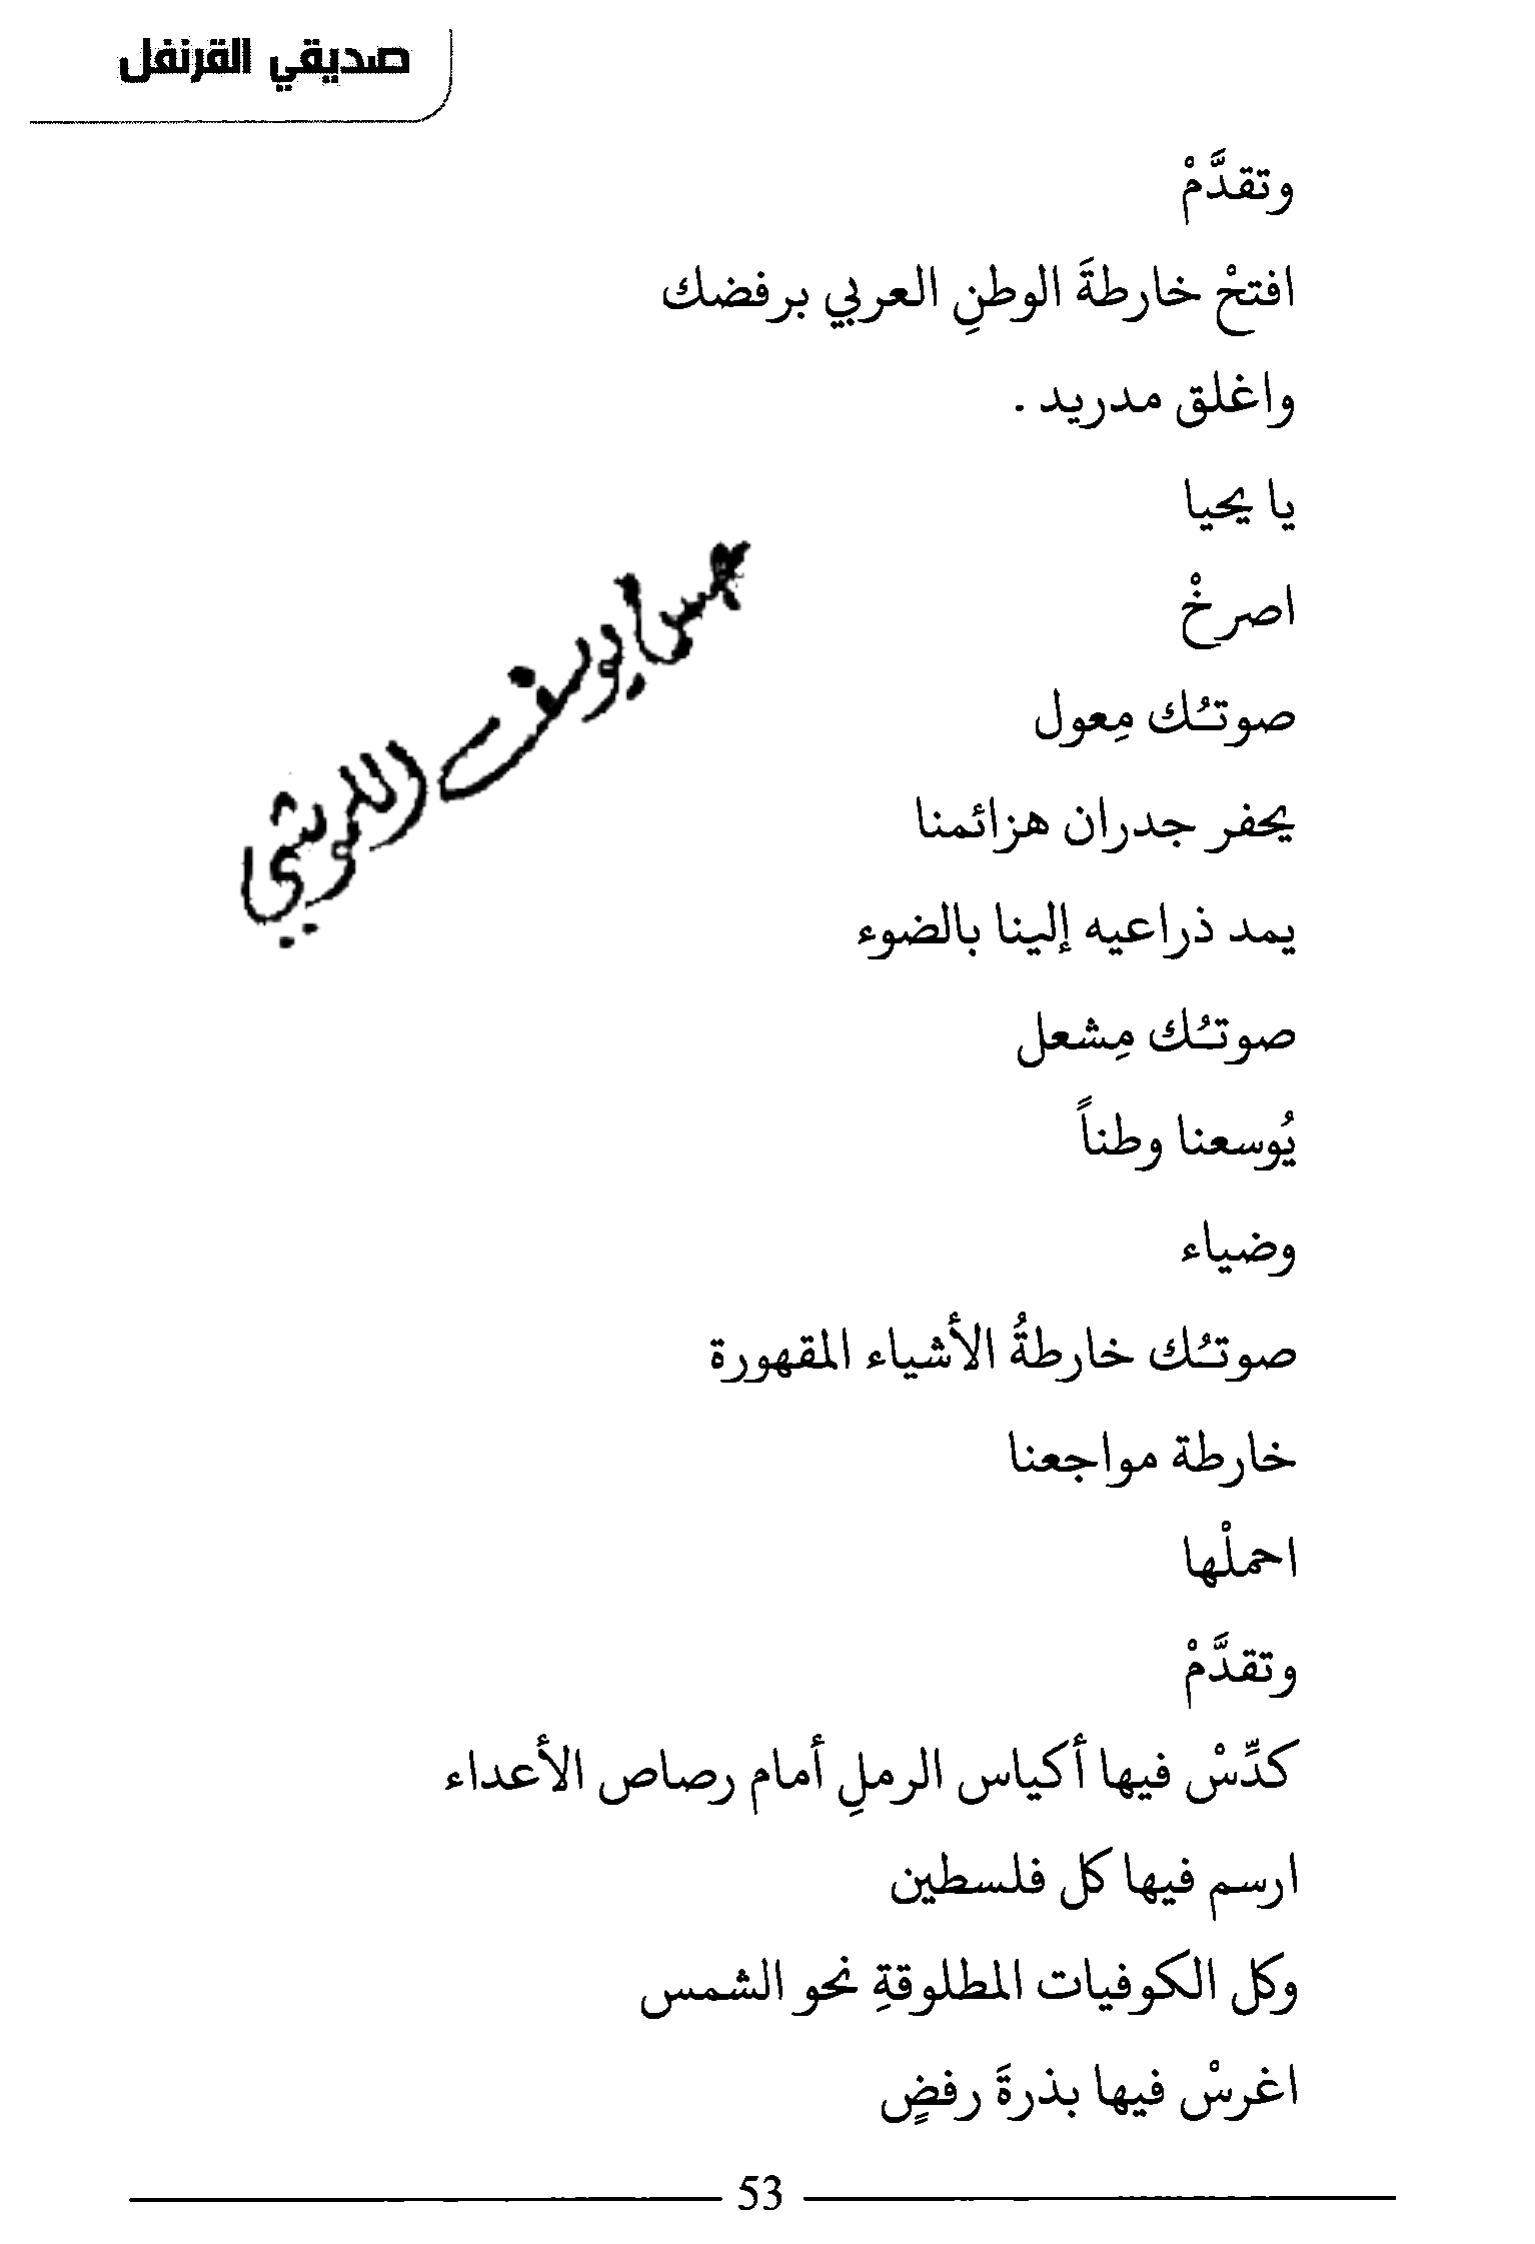 صديقي القرنفل
وتقدَّمْ
افتحْ خارطةَ الوطنِ العربي برفضك
واغلق مدريد .
يا يحيا
اصرخْ
صوتـُك مِعول
يحفر جدران هزائمنا
يمد ذراعيه إلينا بالضوء
صوتـُك مِشعل
يُوسعنا وطناً
وضياء
صوتـُك خارطةُ الأشياء المقهورة
خارطة مواجعنا
احملْها
وتقدَّمْ
كدِّسْ فيها أكياس الرملِ أمام رصاص الأعداء
ارسم فيها كل فلسطين
وكل الكوفيات المطلوقةِ نحو الشمس
اغرسْ فيها بذرةَ رفضٍ
53